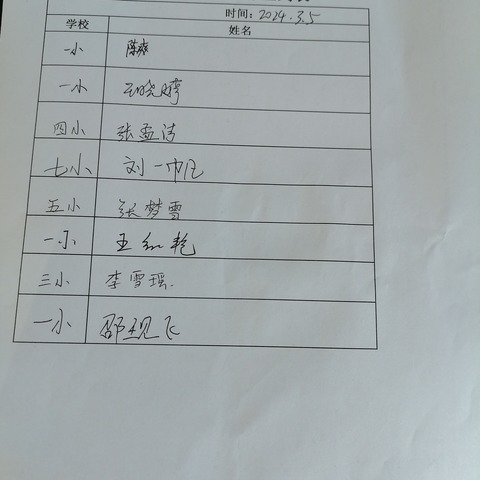 时间：2024.3.5
学校 姓名
一小 陈爽
一小 王晓鹏
四小 张孟涛
七小 刘一帆
五小 张梦雪
一小 王红艳
三小 李雪瑶.
一小 邵现飞